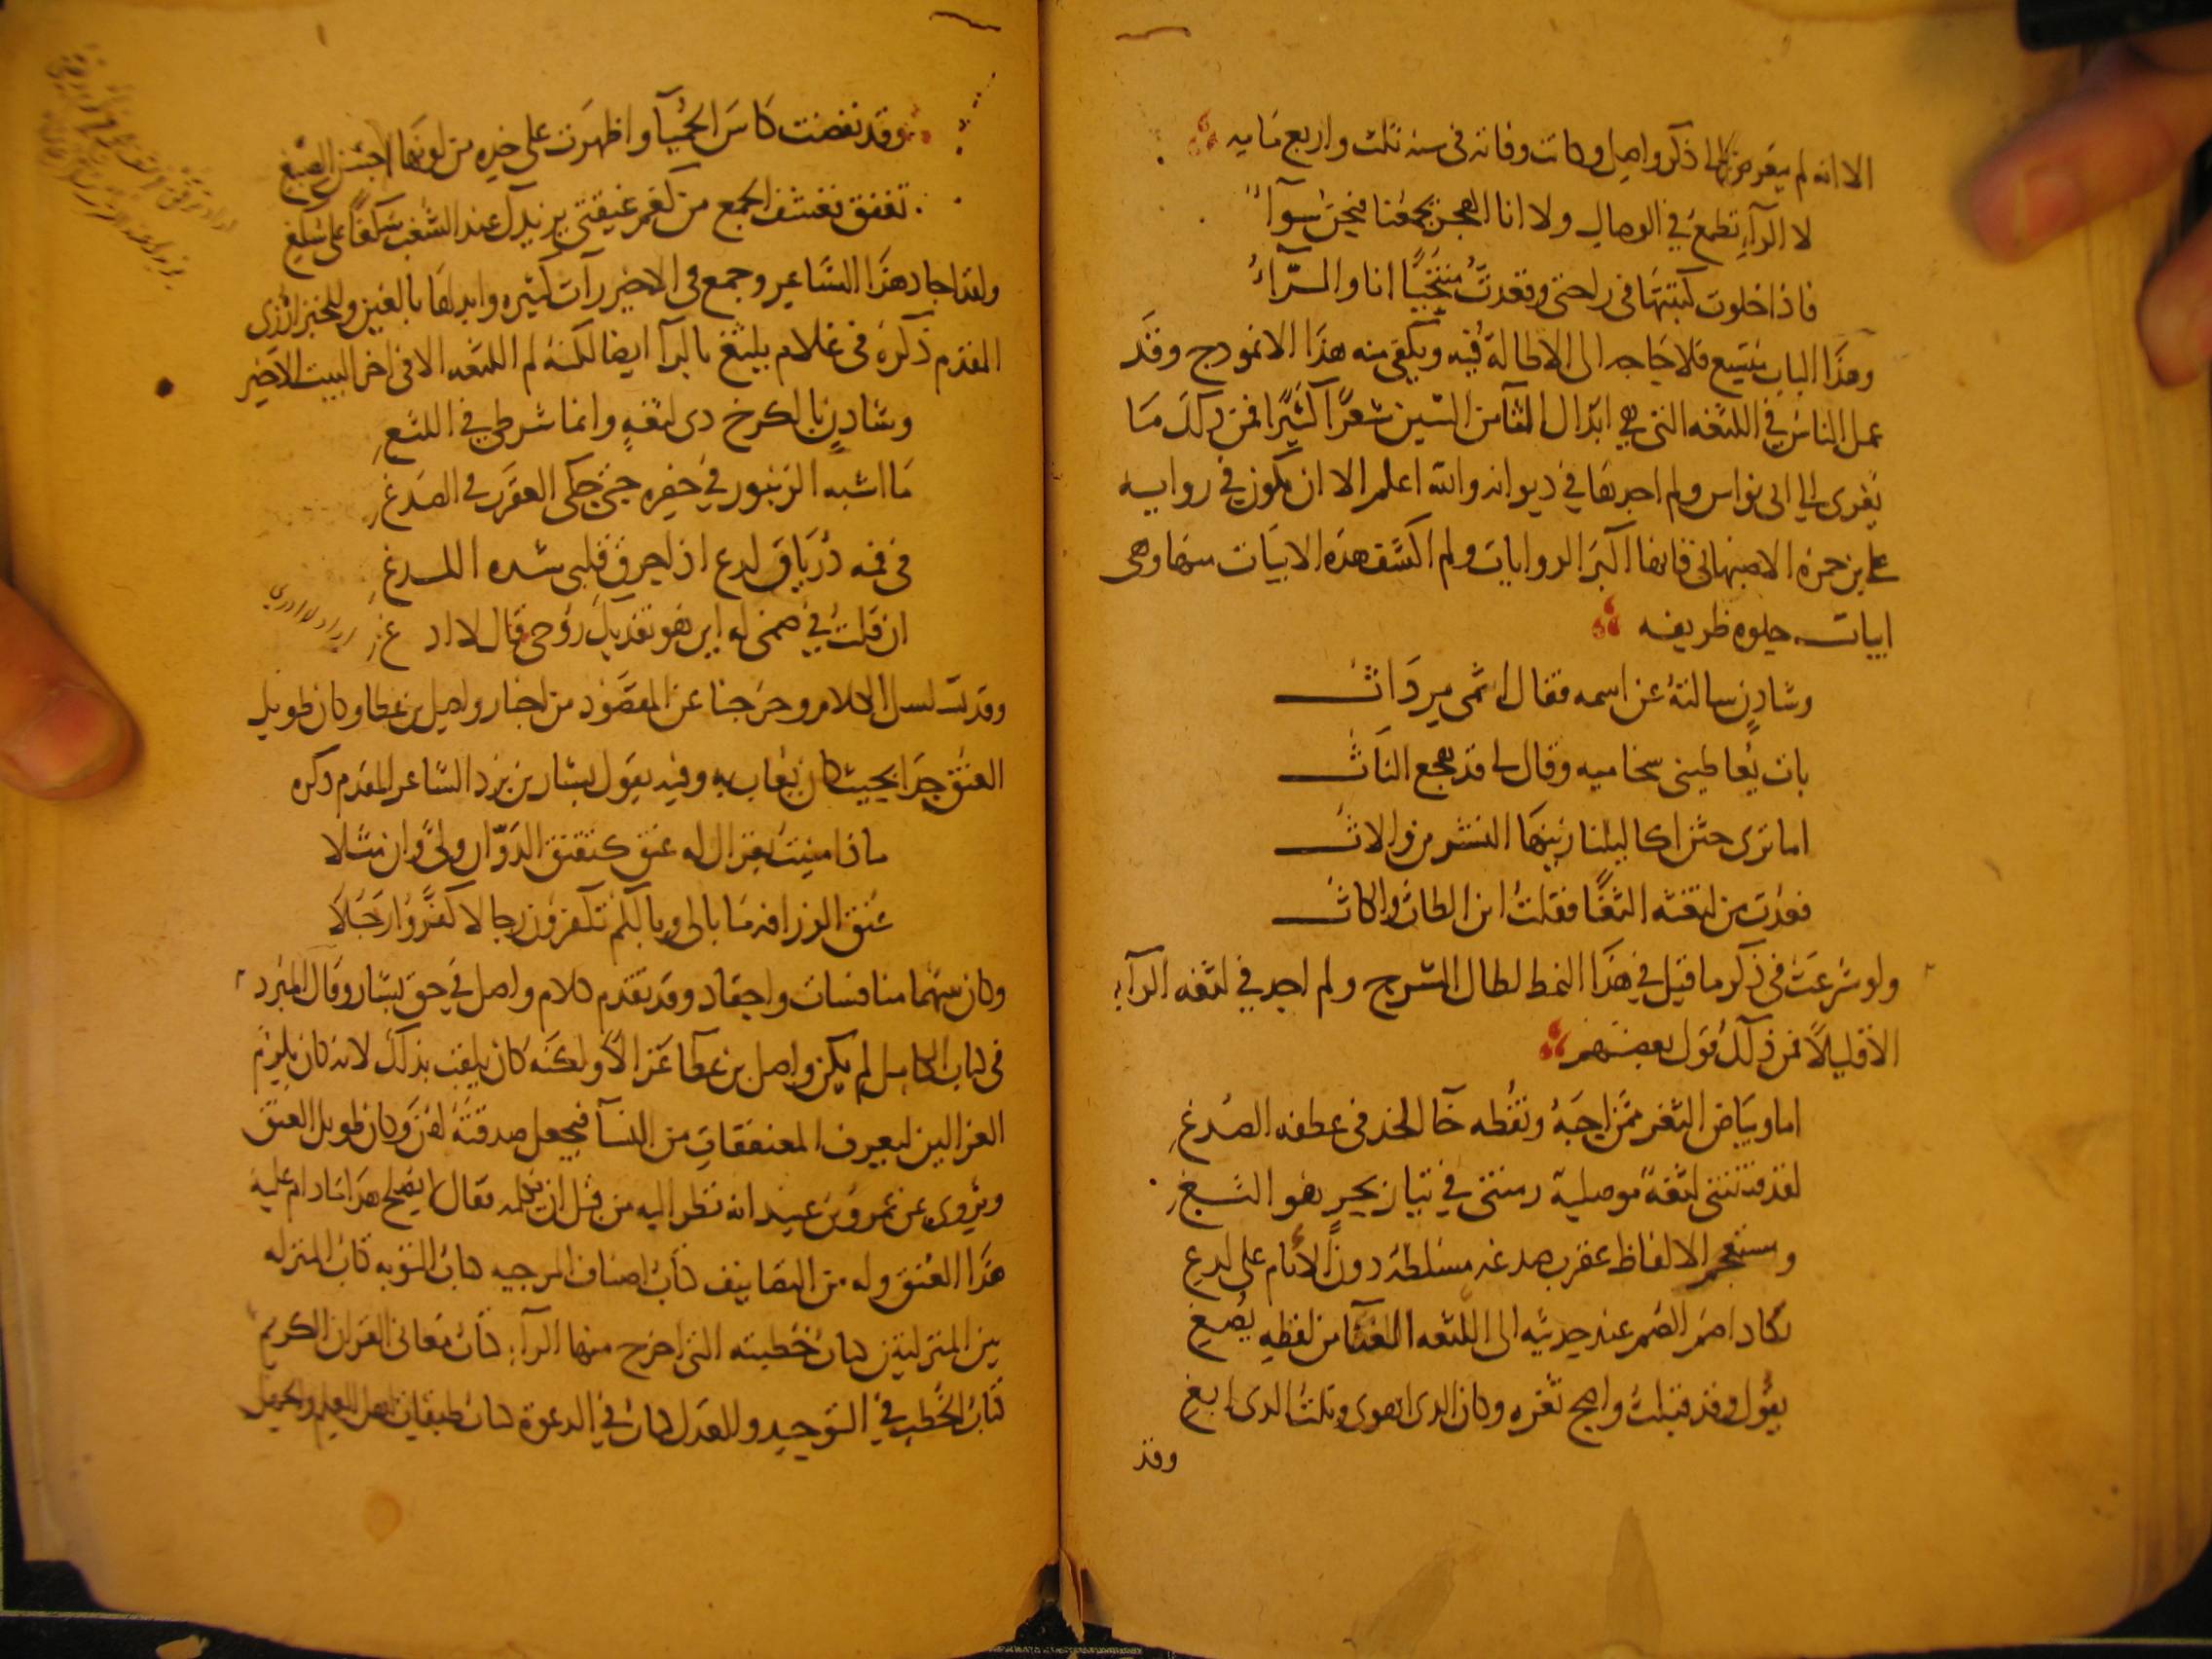 الا انه لم يتعرض الى ذكر واصل وكانت وفاته في سنه ثلث واربع مايه
لا الرآء تطمع في الوصال ولا انا الهجر يجمعنا فنحن سوآء
فاذا خلوت كتبتها في راحتي وقعدت منتحبًا انا والرآء
وهذا الباب متسع فلا حاجه الى الاطالة فيه ويكفي منه هذا الانموذج وقد
عمل الناس في اللثغه التي هي ابدال الثآ من السين شعرًا كثيرًا فمن ذلك ما
يعزى الى ابي نواس ولم اجدها في ديوانه والله اعلم الا ان تكون في روايه
علي بن حمزه الاصبهاني فانها اكبر الروايات ولم اكشف هذه الابيات منها وهي
ابيات حلوه ظريفه
وشادن سالته عن اسمه فقال اثمي مرداث
بات يعاطيني سخاميه وقال لي قد هجع الناث
اما ترى حثن اكاليلنا زينها النثرين والاث
فعدت من لثغته الثغًا فقلت اين الطاث والكاث
ولو شرعت في ذكر ما قيل في هذا النمط لطال الشرح ولم اجد في لثغه الرآء
الا قليلاً فمن ذلك قول بعضهم
اما وبياض الثغر ممن احبه ونقطه خال الخد في عطفه الصدغ
لقد فتنتني لثغة موصلية رمتني في تيار بحر هوا اللثغ
ومستعجم الالفاظ عقرب صدغه مسلطة دون الانام على لدغ
يكاد اصم الصم عند حديثه الى اللثغه الغنآ من لفظه يصغ
يقول وقد قبلت واضح ثغره وكان الذي اهوى ونلت الذي ابغ
وقد
وقد نفضت كاس الحميآ واظهرت على خده من لونها احسن الصبغ
تغفق نغشف الجمع من كغم غيقتي يزيدك عند الشغب سكغًا على سكغ
ولقد اجاد هذا الشاعر وجمع في الاخير رآت كثيره وابدلها بالغين وللخبزارزي
المقدم ذكره في غلام يلثغ بالرآ ايضا لكنه لم اللثغه الا في اخر البيت الاخير
وشادن بالكرخ ذي لثغه وانما شرطي في اللثغ
ما اشبه الزنبور في خصره حتى حكى العقرب في الصدغ
في فمه درياق لدغ اذا احرق قلبي شده اللدغ
ان قلت في ضمي له اين هو تفديك روحي قال لا ادغ
وقد تسلسل الكلام وخرجنا عن المقصود من اخبار واصل بن عطا وكان طويل
العنق جدا بحيث كان يعاب به وفيه يقول بشار بن برد الشاعر المقدم ذكره
ماذا منيت بغزال له عنق كنقنق الدوّ ان ولى وان مثلا
عنق الزرافه ما بالي وبالكم تكفرون رجالا كفروا رجلا
وكان بينهما منافسات واحقاد وقد تقدم كلام واصل في حق بشار وقال المبرد
في كتاب الكامل لم يكن واصل بن عطآ غزالاً ولكنه كان يلقب بذلك لانه كان يلزم
الغزالين ليعرف المتعففات من النسآ فيجعل صدقته لهن وكان طويل العنق
ويروى عن عمرو بن عبيد انه نظر اليه من قبل ان يكلمه فقال لا يفلح هذا ما دام عليه
هذا العنق وله من التصانيف كتاب اصناف المرجيه كتاب التوبه كتاب المنزله
بين المنزلتين كتاب خطبته التي اخرج منها الرآء كتاب معاني القران الكريم
كتاب الخطب في التوحيد والعدل كتاب في الدعوة كتاب طبقات اهل العلم والجهل